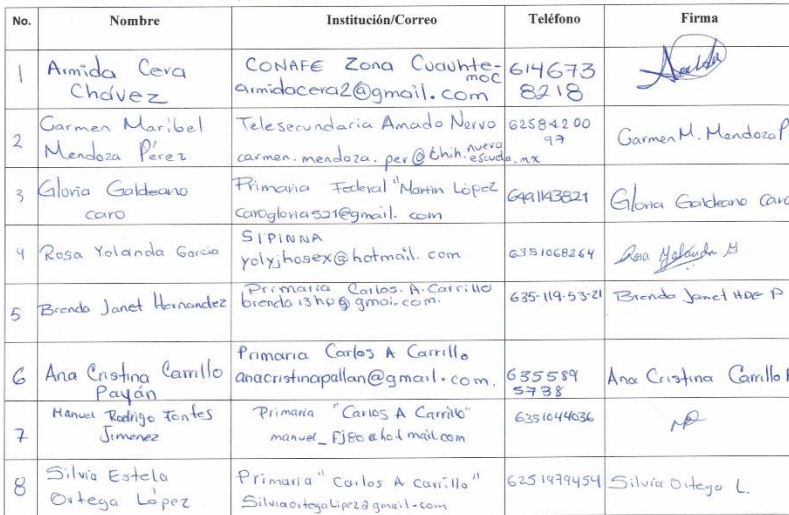 No. Nombre Institución/Correo Teléfono Firma
1 Armida Cera Chávez CONAFE Zona Cuauhtemoc armidacera2@gmail.com 614673 8218
2 Carmen Maribel Mendoza Pérez Telesecundaria Amado Nervo carmen.mendoza.per@chih.nuevaescuela.mx 62584200 97 Carmen M. Mendoza P.
3 Gloria Galdeano caro Primaria Federal "Martin López carogloria521@gmail.com Gloria Galdeano caro
4 Rosa Yolanda Garcia SIPINNA yolyjhosex@hotmail.com 6351068264 Rosa Yolanda G
5 Brenda Janet Hernandez Primaria Carlos. A. Carrillo brenda13hp@gmai.com. 635-119-53-21 Brenda Janet HDE P
6 Ana Cristina Carrillo Payán Primaria Carlos A Carrillo anacristinapallan@gmail.com. 635589 5738 Ana Cristina Carrillo P
7 Manuel Rodrigo Fontes Jimenez Primaria "Carlos A Carrillo" manuel_fj80@hotmail.com 6351044036
8 Silvia Estela Ortega López Primaria "Carlos A Carrillo" SilviaortegaLipez@gmail.com 6251979454 Silvia Ortega L.